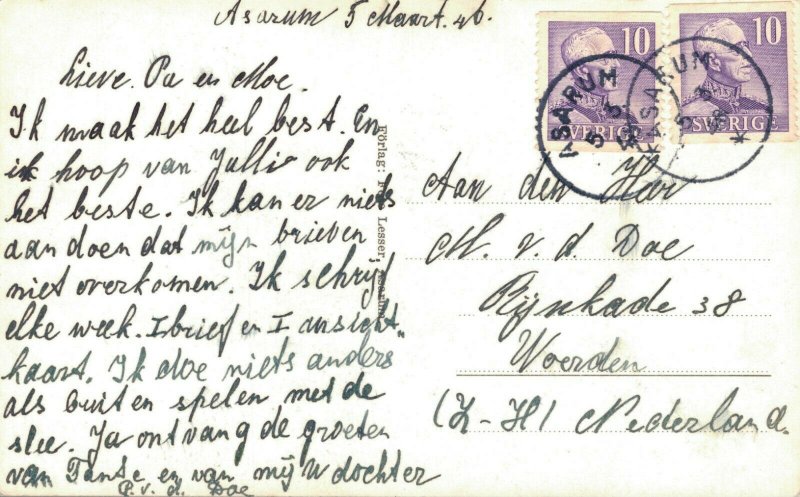 Asarum 5 Maart. 46.
Lieve. Pa en Moe.
Ik maak het heel best. En
ik hoop van Julli ook
het beste. Ik kan er niets
aan doen dat mijn brieven
niet overkomen. Ik schrijf
elke week. I brief en I ansicht
kaart. Ik doe niets anders
als buiten spelen met de
slee. Ja ontvang de groeten
van Tante en van mij U dochter
P. v. d. Doe
Förlag: Lesser, Asarum
10
SVERIGE
10
SVERIGE
ASARUM
5 3
46
ASARUM
5 3
46
Aan den Heer
M. v. d. Doe
Rijnkade 38
Woerden
(Z-H) Nederland.